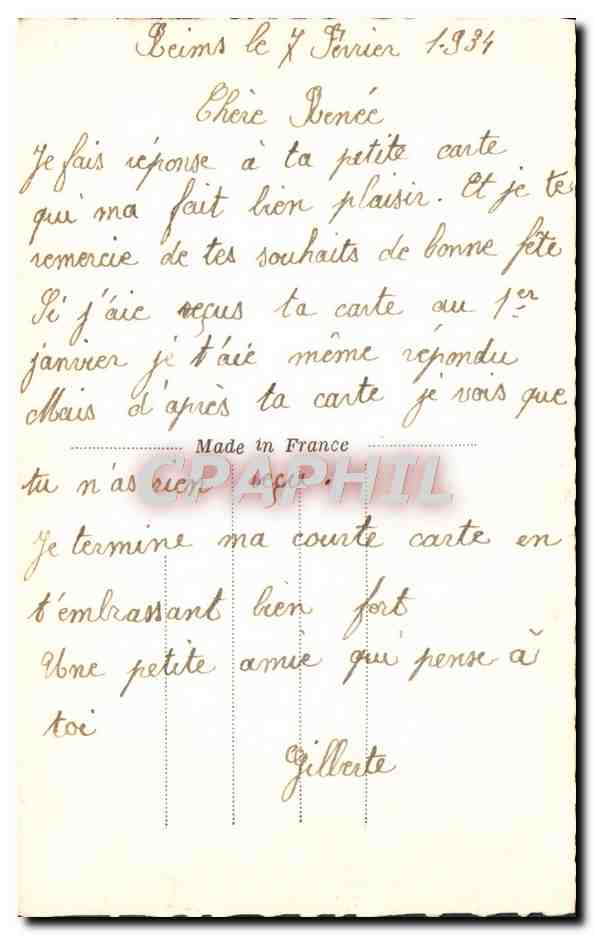 Reims le 7 Février 1.934
Chère Renée
Je fais réponse à ta petite carte
qui ma fait bien plaisir. Et je te
remercie de tes souhaits de bonne fête
Si j'aie reçus ta carte au 1er
janvier je t'aie même répondu
Mais d'après ta carte je vois que
Made in France
CPAPHIL
tu n'as rien reçu.
Je termine ma courte carte en
t'embrassant bien fort
Une petite amie qui pense à
toi
Gilberte